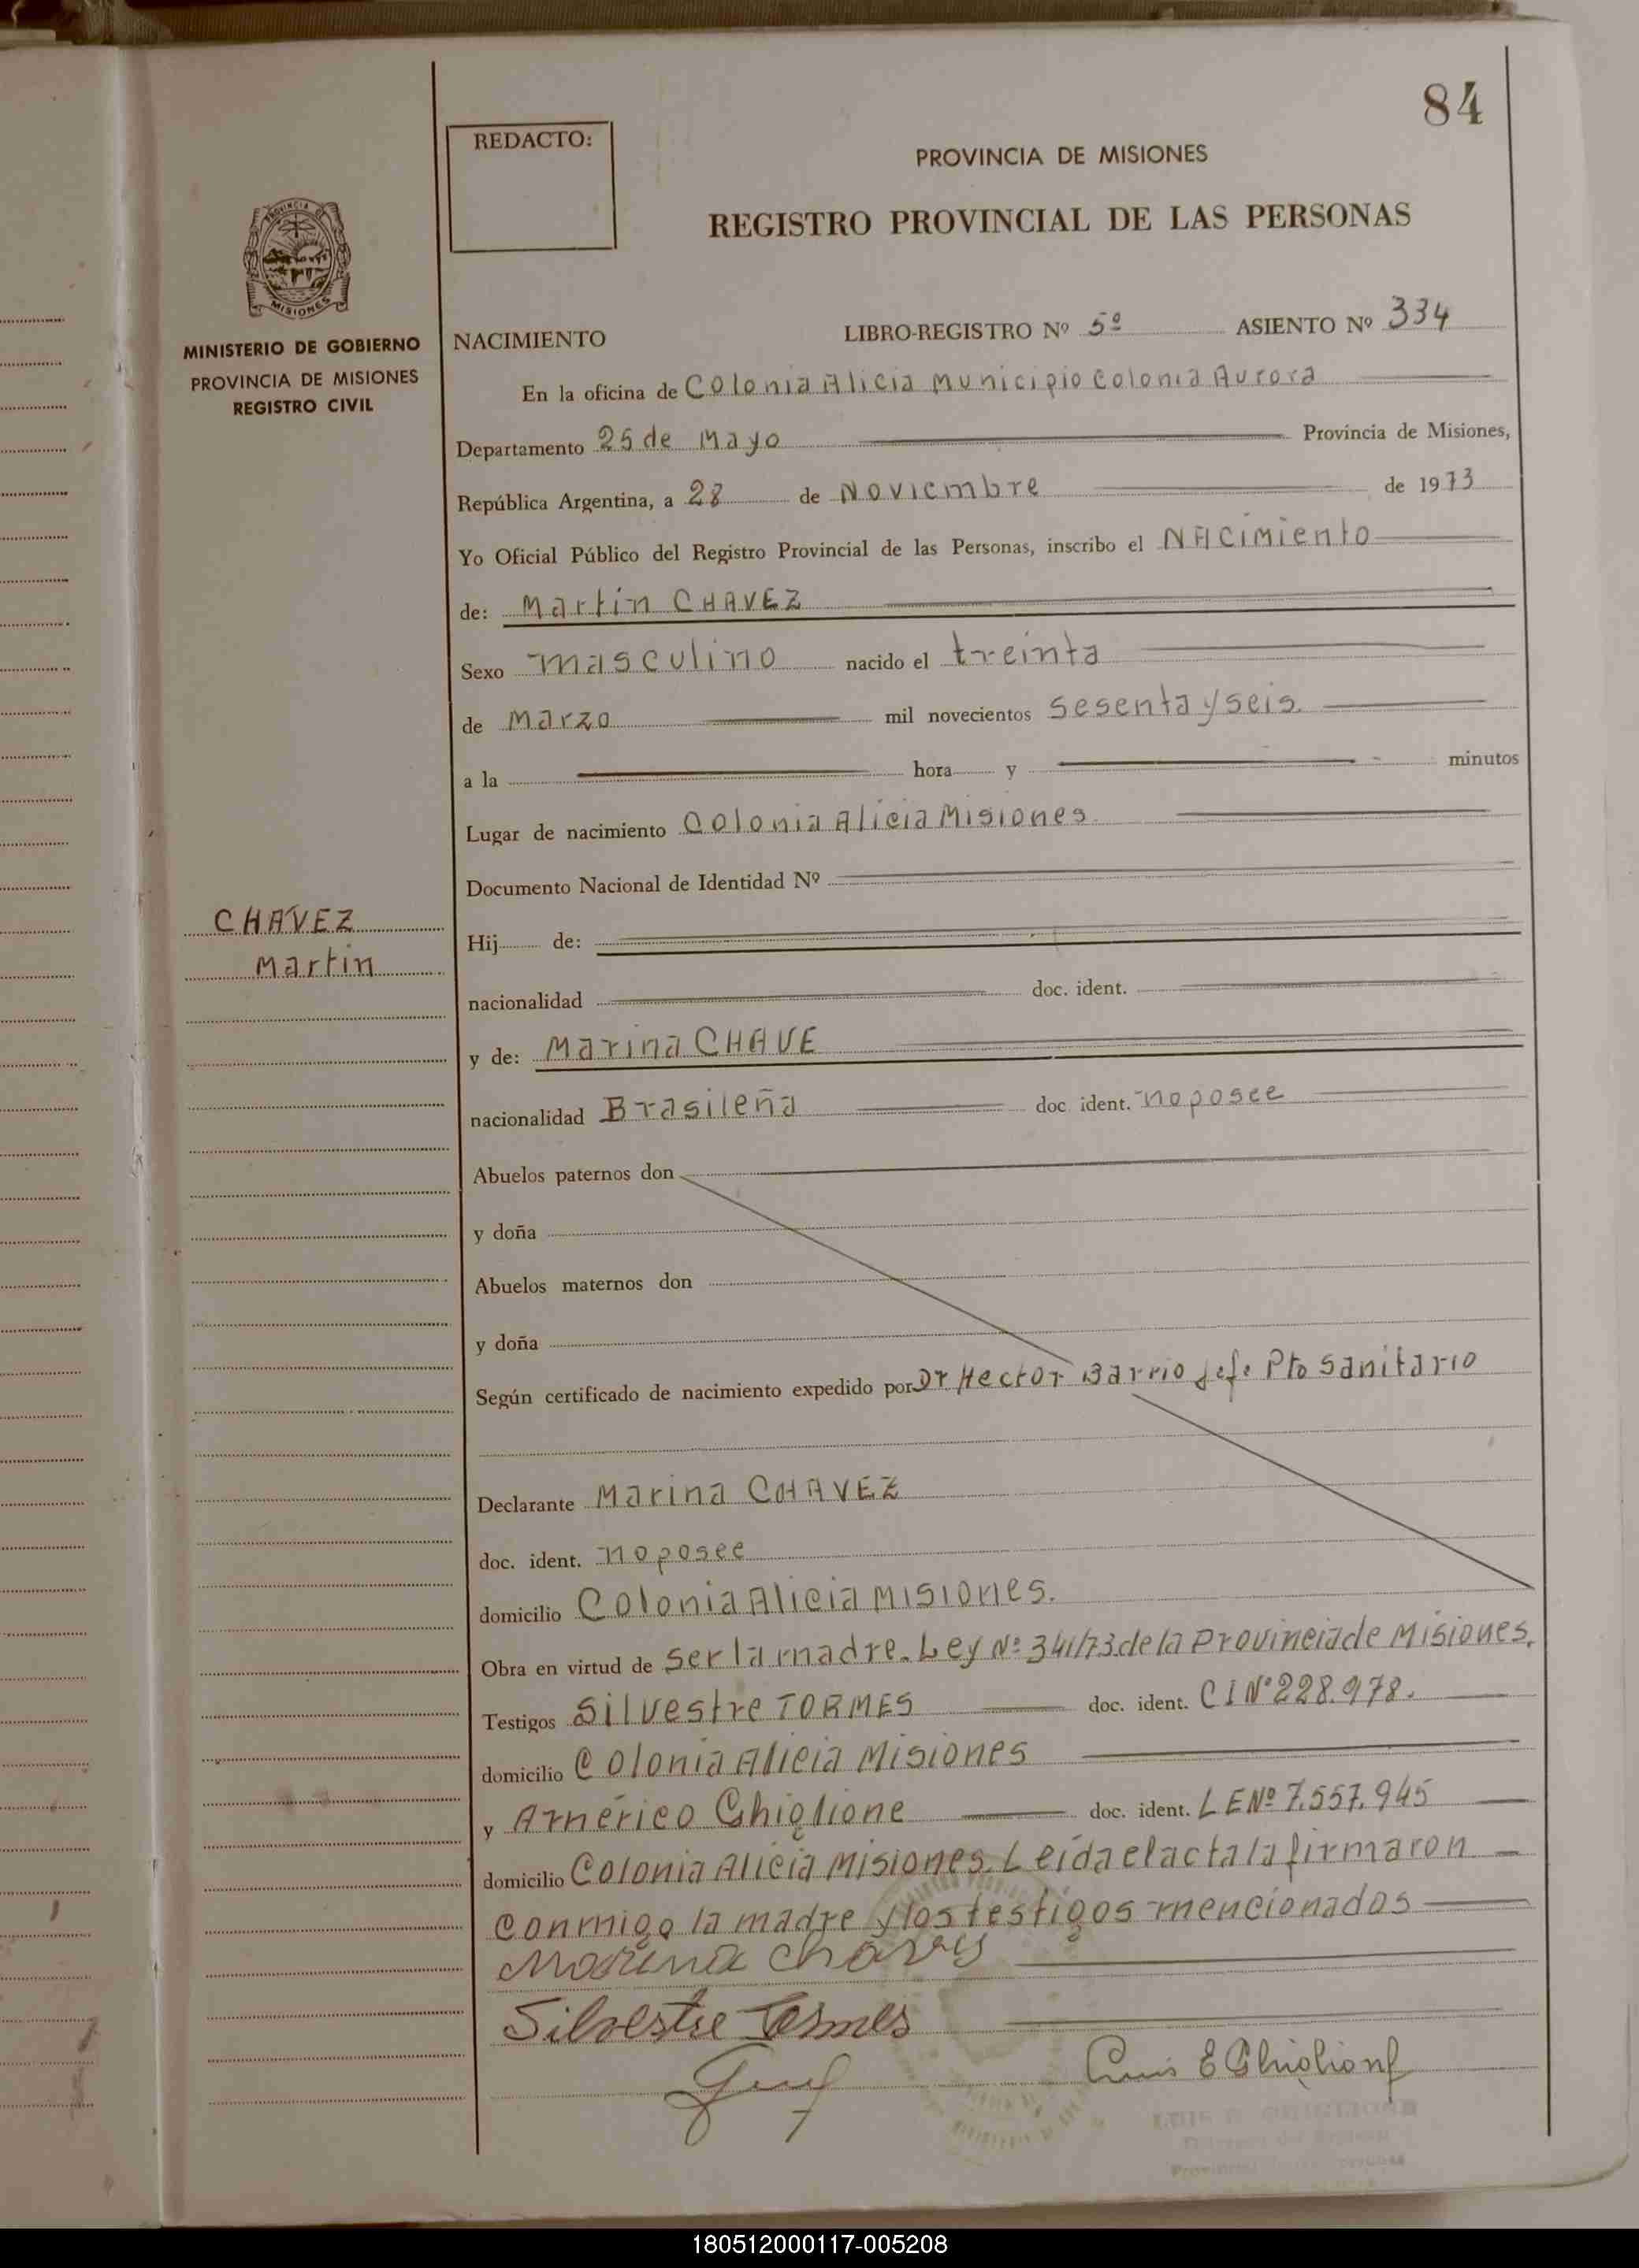 84
REDACTO:
PROVINCIA DE MISIONES
REGISTRO PROVINCIAL DE LAS PERSONAS
PROVINCIA DE
MISIONES
MINISTERIO DE GOBIERNO
PROVINCIA DE MISIONES
REGISTRO CIVIL
NACIMIENTO LIBRO-REGISTRO Nº 5º ASIENTO Nº 334
En la oficina de Colonia Alicia Municipio Colonia Aurora
Departamento 25 de Mayo Provincia de Misiones,
República Argentina, a 28 de Noviembre de 1973
Yo Oficial Público del Registro Provincial de las Personas, inscribo el NAcimiento
de: Martin CHAVEZ
Sexo masculino nacido el treinta
de Marzo mil novecientos sesenta y seis.
a la hora y minutos
Lugar de nacimiento Colonia Alicia Misiones
Documento Nacional de Identidad Nº
CHAVEZ
Martin
Hij de:
nacionalidad doc. ident.
y de: Marina CHAVE
nacionalidad Brasileña doc ident. no posee
Abuelos paternos don
y doña
Abuelos maternos don
y doña
Según certificado de nacimiento expedido por Dr Hector Barrio Jefe Pto Sanitario
Declarante Marina CHAVEZ
doc. ident. no posee
domicilio Colonia Alicia Misiones.
Obra en virtud de ser la madre. Ley Nº 341/73 de la Provincia de Misiones.
Testigos Silvestre TORMES doc. ident. CI Nº 228.978.
domicilio Colonia Alicia Misiones
y Américo Ghiglione doc. ident. LE Nº 7.557.945
domicilio Colonia Alicia Misiones. Leída el acta la firmaron
conmigo la madre y los testigos mencionados
Marina Chaves
Silvestre Tormes
Luis E Ghiglione
LUIS E. GHIGLIONE
180512000117-005208